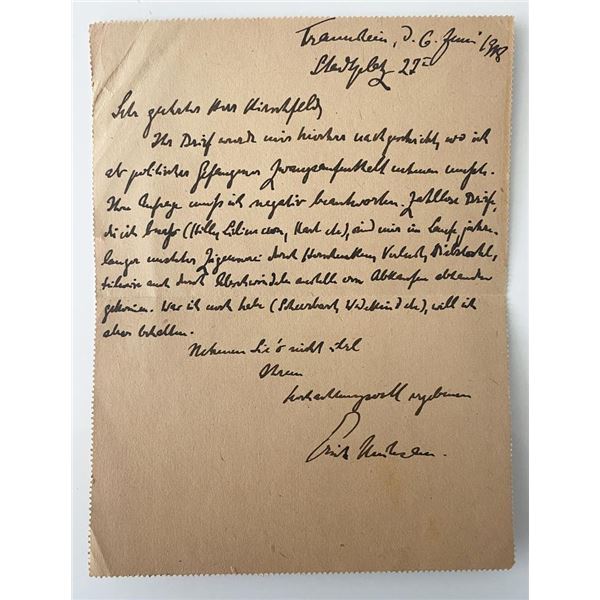 Traunstein, d. 6. Juni 1918
Stadtplatz 27 II
Sehr geehrter Herr Hirschfeld,
Ihr Brief wurde mir hierher nachgeschickt, wo ich
als politischer Gefangener Zwangsaufenthalt nehmen musste.
Ihre Anfrage muss ich negativ beantworten. Zahllose Briefe,
die ich besass (Hille, Liliencron, Hart etc), sind mir im Laufe jahre-
langer unsteter Zigeunerei durch Verlust, Diebstahl,
teilweise auch durch von Abkaufen abhanden
gekommen. Was ich noch habe (Scheerbart, Wedekind etc), will ich
aber behalten.
Nehmen Sie's nicht übel
Ihrem
hochachtungsvoll ergebenen
Erich Mühsam.